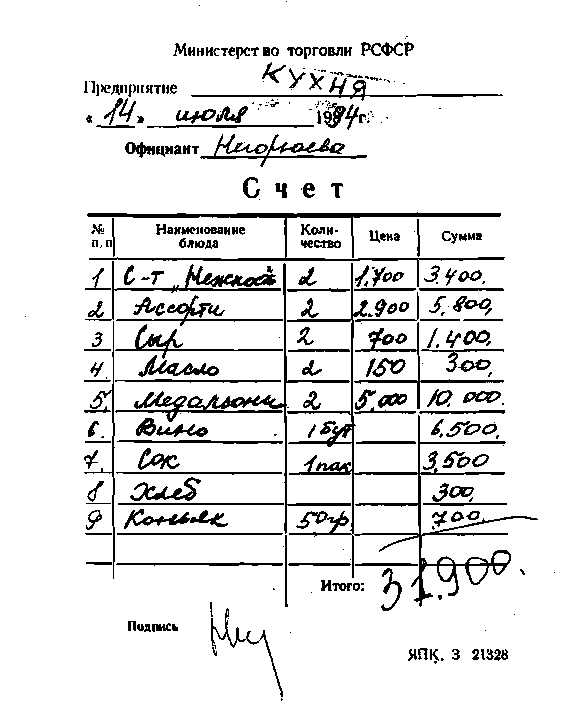 Министерство торговли РСФСР
Предприятие КУХНЯ
« 14 » июля 1994г.
Официант
Счет
№ п.п Наименование блюда Коли-чество Цена Сумма
1 С-т „Нежность" 2 1.700 3.400,
2 Ассорти 2 2.900 5.800,
3 Сыр 2 700 1.400,
4. Масло 2 150 300,
5. Медальоны 2 5.000 10.000.
6. Вино 1 бут 6.500,
7. Сок 1 пак 3,500
8 Хлеб 300,
9 Коньяк 50гр. 700,
Итого: 31.900.
Подпись
ЯПК. З 21328